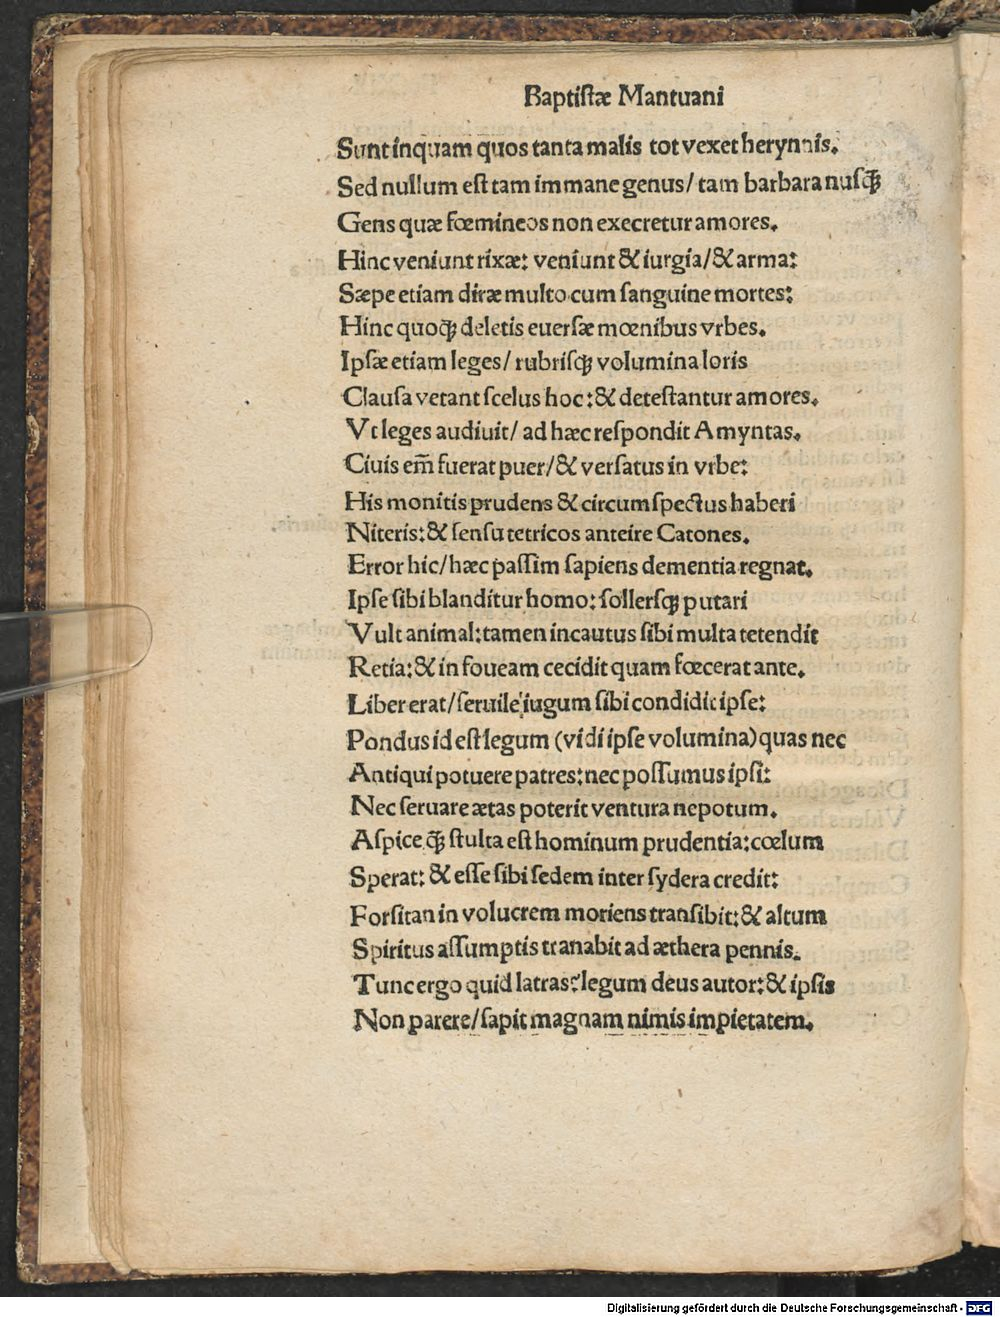 Baptistæ Mantuani
Sunt inquam quos tanta malis tot vexet herynnis.
Sed nullum est tam immane genus/ tam barbara nusq̃
Gens quæ fœmineos non execretur amores.
Hinc veniunt rixæ: veniunt & iurgia/ & arma:
Sæpe etiam diræ multo cum sanguine mortes:
Hinc quoq; deletis euersæ mœnibus vrbes.
Ipsæ etiam leges/ rubrisq; volumina loris
Clausa vetant scelus hoc: & detestantur amores.
Vt leges audiuit/ ad hæc respondit Amyntas.
Ciuis em̃ fuerat puer/ & versatus in vrbe:
His monitis prudens & circumspectus haberi
Niteris: & sensu tetricos anteire Catones.
Error hic/ hæc passim sapiens dementia regnat.
Ipse sibi blanditur homo: sollersq; putari
Vult animal: tamen incautus sibi multa tetendit
Retia: & in foueam cecidit quam fœcerat ante.
Liber erat/ seruile iugum sibi condidit ipse:
Pondus id est legum (vidi ipse volumina) quas nec
Antiqui potuere patres: nec possumus ipsi:
Nec seruare ætas poterit ventura nepotum.
Aspice q̃ stulta est hominum prudentia: cœlum
Sperat: & esse sibi sedem inter sydera credit:
Forsitan in volucrem moriens transibit: & altum
Spiritus assumptis tranabit ad æthera pennis.
Tunc ergo quid latras? legum deus autor: & ipsis
Non parere/ sapit magnam nimis impietatem.
Digitalisierung gefördert durch die Deutsche Forschungsgemeinschaft - DFG